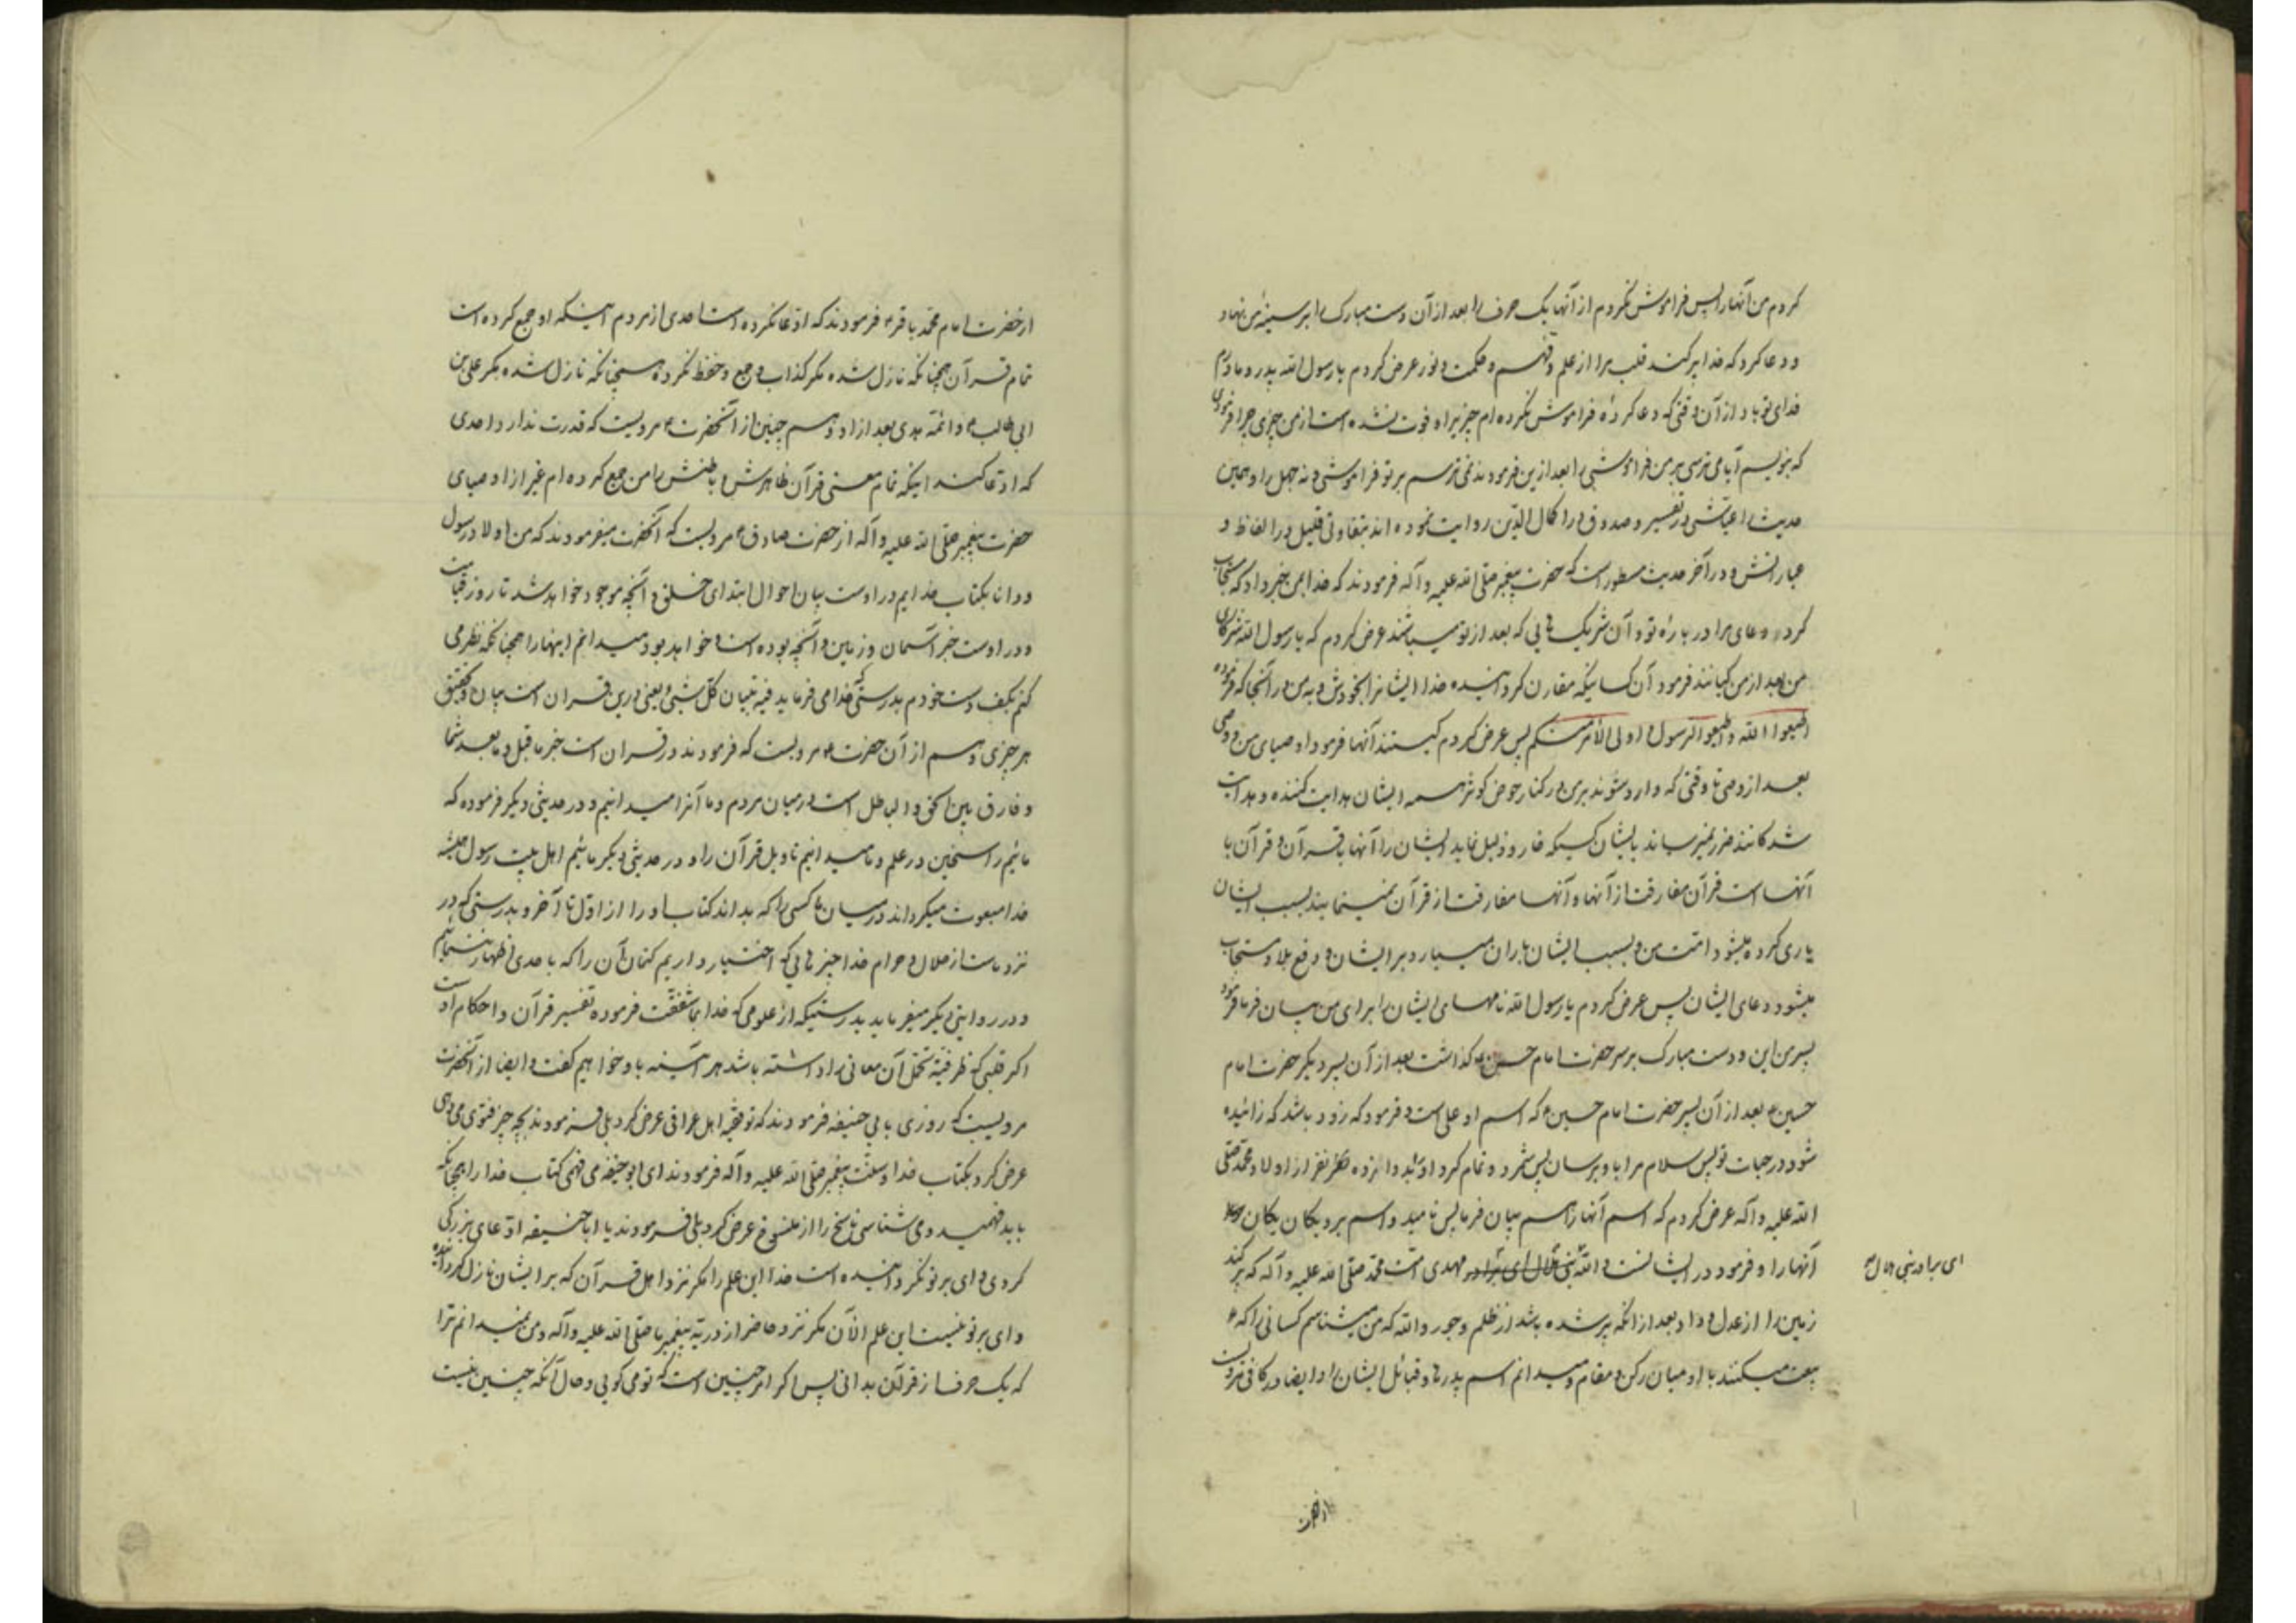 کردم من آنها را پس فراموش نکردم از آنها یک حرف را بعد از آن دست مبارک را بر سینهٔ من نهاد و
و دعا کرد که خدا پر کند قلب مرا از علم و فهم و حکمت و نور عرض کردم یا رسول الله پدر و مادرم
فدای تو باد از آن وقتی که دعا کردهٔ فراموش نکرده ام چیزیرا و فوت نشده است از من چیزی چرا فرمودی
که بنویسم آیا می ترسی بر من فراموشی را بعد ازین فرمودند نمی ترسم بر تو فراموشی و نه جهل را و همین
حدیث را عیاشی در تفسیر و صدوق در اکمال الدین روایت نموده اند بتفاوتی قلیل در الفاظ و
عباراتش و در آخر حدیث مسطور است که حضرت پیغمبر صلی الله علیه و آله فرمودند که خدا بمن خبر داد که مستجاب
کرده دعای مرا در بارهٔ تو و آن شریک هایی که بعد از تو میباشند عرض کردم که یا رسول الله شرکای
من بعد از من کیانند فرمود آن کسانیکه مقارن گردانیده خدا ایشانرا بخودش و به من در آنجا که فرموده
اطیعوا الله و اطیعوا الرسول و اولی الأمر منکم پس عرض کردم کیستند آنها فرمود اوصیای من وصی
بعد از وصی تا وقتی که وارد شوند بر من در کنار حوض کوثر همه ایشان هدایت کننده و هدایت
شدگانند ضرر نمیرساند بایشان کسیکه خار و ذلیل نماید ایشان را آنها با قرآن و قرآن با
آنها است قرآن مفارقت از آنها و آنها مفارقت از قرآن نمینمایند بسبب ایشان
یاری کرده میشود امت من و بسبب ایشان باران میبارد بر ایشان و دفع بلا و مستجاب
میشود دعای ایشان پس عرض کردم یا رسول الله نامهای ایشان را برای من بیان فرما فرمود
پسر من این و دست مبارک بر سر حضرت امام حسن ع گذاشت بعد از آن پسر دیگر حضرت امام
حسین ع بعد از آن پسر حضرت امام حسین ع که اسم او علی است و فرمود که زود باشد که زائیده
شود در حیات تو پس سلام مرا باو برسان پس شمرد و تمام کرد دوازده نفر از اولاد محمد صلی
الله علیه و آله عرض کردم که اسم آنها را بیان فرما پس نامید و اسم برد یکان یکان
آنها را و فرمود در ایشانست والله مهدی امت محمد صلی الله علیه و آله که پر کند
ای برادر بنی هلال
زمین را از عدل و داد بعد از آنکه پر شده باشد از ظلم و جور والله که من میشناسم کسانی را که
بیعت میکنند با او میان رکن و مقام و میدانم اسم پدرها و قبائل ایشان را و ایضا در کافی مرویست
از حضرت
از حضرت امام محمد باقر ع فرمودند که ادعا نکرده است احدی از مردم اینکه او جمع کرده است
تمام قرآن چنانکه نازل شده مگر کذاب و جمع و حفظ نکرده همچنانکه نازل شده مگر علی بن
ابی طالب ع و ائمه هدی بعد از او و هم چنین از آنحضرت ع مرویست که قدرت ندارد احدی
که ادعا کند اینکه تمام معنی قرآن ظاهرش و باطنش را من جمع کرده ام غیر از اوصیای
حضرت پیغمبر صلی الله علیه و آله از حضرت صادق ع مرویست که آنحضرت میفرمودند که من اولاد رسول
و دانا بکتاب خدایم در اوست بیان احوال ابتدای خلق و آنچه موجود خواهد شد تا روز قیامت
و در اوست خبر آسمان و زمین و آنچه بوده است و خواهد بود میدانم اینها را همچنانکه نظر می
کنم بکف دست خودم بدرستی که خدا می فرماید فیه تبیان کل شئ یعنی درین قرآن است بیان و تحقیق
هر چیزی و هم از آن حضرت ع مرویست که فرمودند در قرآن است خبر ما قبل و ما بعد شما
و فارق بین الحق و الباطل است در میان مردم و ما آنرا میدانیم و در حدیثی دیگر فرموده که
مائیم راسخین در علم و ما میدانیم تاویل قرآن را و در حدیثی دیگر مائیم اهل بیت رسول همیشه
خدا مبعوث میگرداند در میان ما کسی را که بداند کتاب او را از اول تا آخر و بدرستی که در
نزد ماست از حلال و حرام خدا چیزهایی که اختیار داریم کتمان آن را که با حدی اظهار ننمائیم
و در روایتی دیگر میفرماید بدرستیکه از علومی که خدا بما شفقت فرموده تفسیر قرآن و احکام اوست
اگر قلبی که ظرفیت تحمل آن معانی را داشته باشد هر آینه باو خواهیم گفت و ایضا از آنحضرت
مرویست که روزی بابی حنیفه فرمودند که تو فقیه اهل عراقی عرض کرد بلی فرمودند بچه چیز فتوی می دهی
عرض کرد بکتاب خدا و سنت پیغمبر صلی الله علیه و آله فرمودند ای ابو حنیفه می فهمی کتاب خدا را همچنانکه
باید فهمید و می شناسی ناسخ را از منسوخ عرض کرد بلی فرمودند یا ابا حنیفه ادعای بزرگی
کردی وای بر تو نگردانیده است خدا این علم را مگر نزد اهل قرآن که بر ایشان نازل گردانیده
وای بر تو نیست این علم الآن مگر نزد خاص از ذریه پیغمبر ما صلی الله علیه و آله و من نمیدانم ترا
که یک حرف از قرآن بدانی پس اگر امر چنین است که تو می گویی و حال آنکه چنین نیست